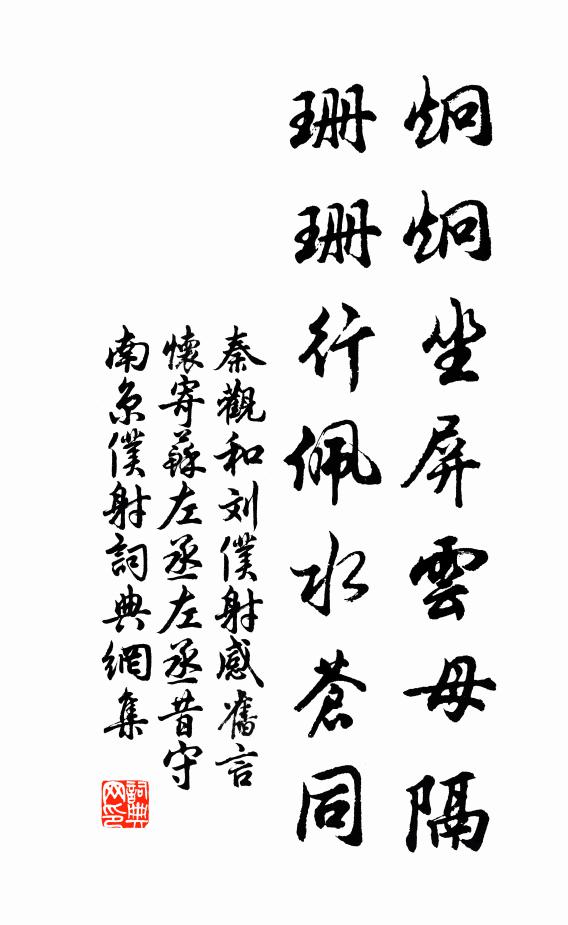 炯炯坐屏雲母隔
珊珊行佩水蒼同
秦觀和刘僕射感舊言
懷寄蘇左丞左丞昔守
南京僕射詞典網集
詞典网印